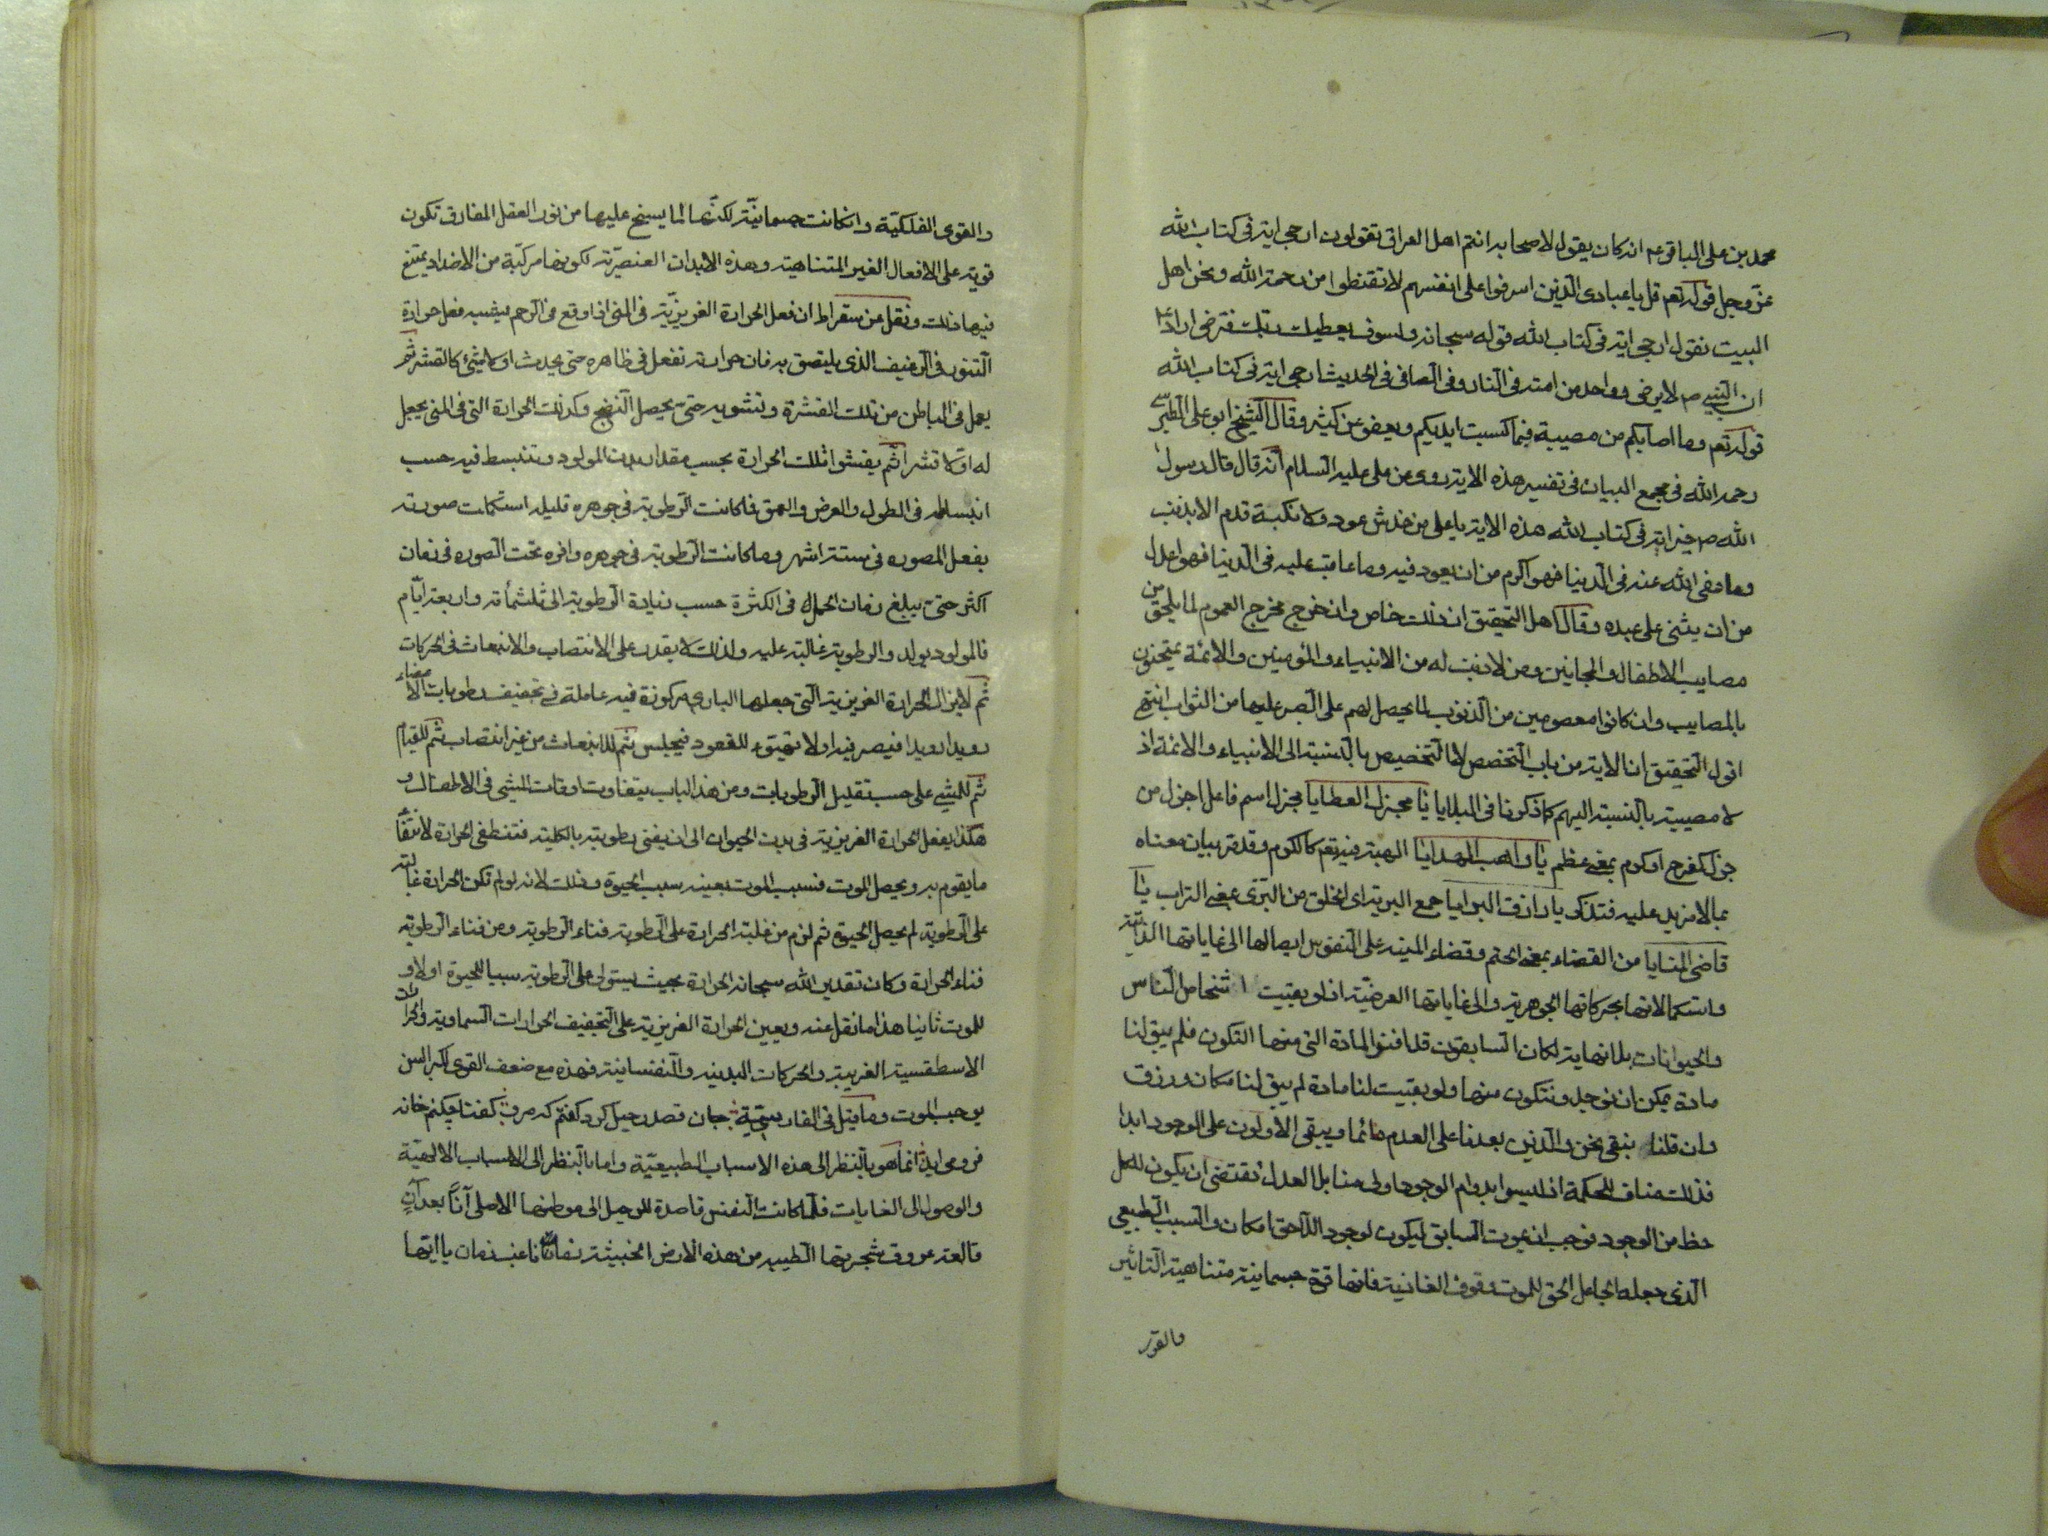 محمد بن على الباقر عم انه كان يقول لاصحابه انتم اهل العراق تقولون ارجى اية فى كتاب الله
عز وجل قوله تعم قل يا عبادى الذين اسرفوا على انفسهم لا تقنطوا من رحمة الله ونحن اهل
البيت نقول ارجى اية فى كتاب الله قوله سبحانه ولسوف يعطيك ربك فترضى اراد ع
ان النبى ص لا يرضى وواحد من امته فى النار وفى الصافى فى الحديث ارجى اية فى كتاب الله
قوله تعم وما اصابكم من مصيبة فبما كسبت ايديكم ويعفو عن كثير وقال الشيخ ابو على الطبرسى
رحمه الله فى مجمع البيان فى تفسير هذه الاية روى عن على عليه السلام انه قال قال رسول
الله ص خير اية فى كتاب الله هذه الاية يا على من خدش عود ولا نكبة قدم الا بذنب
وما عفى الله عنه فى الدنيا فهو اكرم من ان يعود فيه وما عاقب عليه فى الدنيا فهو اعدل
من ان يثنى على عبده وقال اهل التحقيق ان ذلك خاص وان خرج مخرج العموم لما يلحق من
مصايب الاطفال والمجانين ومن لا ذنب له من الانبياء والمؤمنين والائمة يمتحنون
بالمصايب وان كانوا معصومين من الذنوب لما يحصل لهم على الصبر عليها من الثواب انتهى
اقول التحقيق ان الاية من باب التخصص لا التخصيص بالنسبة الى الانبياء والائمة اذ
لا مصيبة بالنسبة اليهم كما ذكرنا فى البلايا يا مجزل العطايا مجزل اسم فاعل اجزل من
جزل كفرح او كرم بمعنى عظم يا واهب الهدايا الهبة فيه تعم كالكرم وقد مر بيان معناه
بما لا مزيد عليه فتذكر يا رازق البرايا جمع البرية اى الخلق من البرى بمعنى التراب يا
قاضى المنايا من القضاء بمعنى الحتم وقضاء المنية على النفوس ايصالها الى غاياتها الذاتية
واستكمالاتها بحركاتها الجوهرية والى غاياتها العرضية اذ لو بقيت اشخاص الناس
والحيوانات بلا نهاية لكان السابقون قد افنوا المادة التى منها التكون فلم يبق لنا
مادة يمكن ان نوجد ونتكون منها ولو بقيت لنا مادة لم يبق لنا مكان ورزق
وان قلنا نبقى نحن والذين بعدنا على العدم دائما ويبقى الاولون على الوجود ابدا
فذلك مناف للحكمة اذ ليسوا بدوام الوجود اولى منا بل العدل تقتضى ان يكون للكل
حظ من الوجود فوجب ان يموت السابق ليكون لوجود اللاحق امكان والسبب الطبيعى
الذى جعله الجاعل الحق للموت وقوف الغاذية فانها قوة جسمانية متناهية التاثير
والقوى
والقوى الفلكية وان كانت جسمانية لكنها لما يسنح عليها من نور العقل المفارق تكون
قوية على الافعال الغير المتناهية وهذه الابدان العنصرية لكونها مركبة من الاضداد يمتنع
فيها ذلك ونقل عن سقراط ان فعل الحرارة الغريزية فى المنى اذا وقع فى الرحم يشبه فعل حرارة
التنور فى الرغيف الذى يلتصق به فان حرارته تفعل فى ظاهره حتى يحدث اولا شئ كالقشر ثم
يعمل فى الباطن من تلك القشرة وتشويه حتى يحصل النضج وكذلك الحرارة التى فى المنى يجعل
له اولا قشرا ثم يفشوا تلك الحرارة بحسب مقدار بدن المولود وتنبسط فيه حسب
انبساطه فى الطول والعرض والعمق فلما كانت الرطوبة فى جوهره قليلة استكملت صورته
بفعل المصوره فى ستة اشهر وما كانت الرطوبة فى جوهره وافره تمت الصوره فى زمان
اكثر حتى يبلغ زمان الحمل فى الكثرة حسب زيادة الرطوبة الى ثلثمأة واربعة ايام
فالمولود يولد والرطوبة غالبة عليه ولذلك لا يقدر على الانتصاب والانبعاث فى الحركات
ثم لا يزال الحرارة الغريزية التى جعلها البارى مركوزة فيه عاملة فى تجفيف رطوبات الاعضاء
رويدا رويدا فيصير فيه اولا تهيؤ للقعود فيجلس ثم للانبعاث من غير انتصاب ثم للقيام
ثم للمشى على حسب تقليل الرطوبات ومن هذا الباب يتفاوت اوقات المشى فى الاطفال و
هكذا يفعل الحرارة الغريزية فى بدن الحيوان الى ان يفنى رطوبته بالكلية فتنطفى الحرارة لانتفاء
ما يقوم به ويحصل الموت فسبب الموت بعينه سبب الحيوة وذلك لانه لو لم تكن الحرارة غالبة
على الرطوبة لم يحصل الحيوة ثم لزم من غلبة الحرارة على الرطوبة فناء الرطوبة ومن فناء الرطوبة
فناء الحرارة وكان تقدير الله سبحانه الحرارة بحيث يستولى على الرطوبة سببا للحيوة اولا و
للموت ثانيا هذا ما نقل عنه ويعين الحرارة الغريزية على التجفيف الحرارات السماوية والحرارات
الاسطقسية الغريبة والحركات البدنية والنفسانية فهذه مع ضعف القوى لكبر السن
يوجب الموت وما قيل فى الفارسية جان قصد رحيل كرد گفتم كه مرو گفتا چكنم خانه
فرو مى ايد انما هو بالنظر الى هذه الاسباب الطبيعية واما بالنظر الى الاسباب الالهية
والوصول الى الغايات فلما كانت النفس قاصدة للرحيل الى موطنها الاصلى آنًا بعد آنٍ
قالعة عروق شجرتها الطيبه من هذه الارض الخبيثة زمانا غب زمان يا ايتها